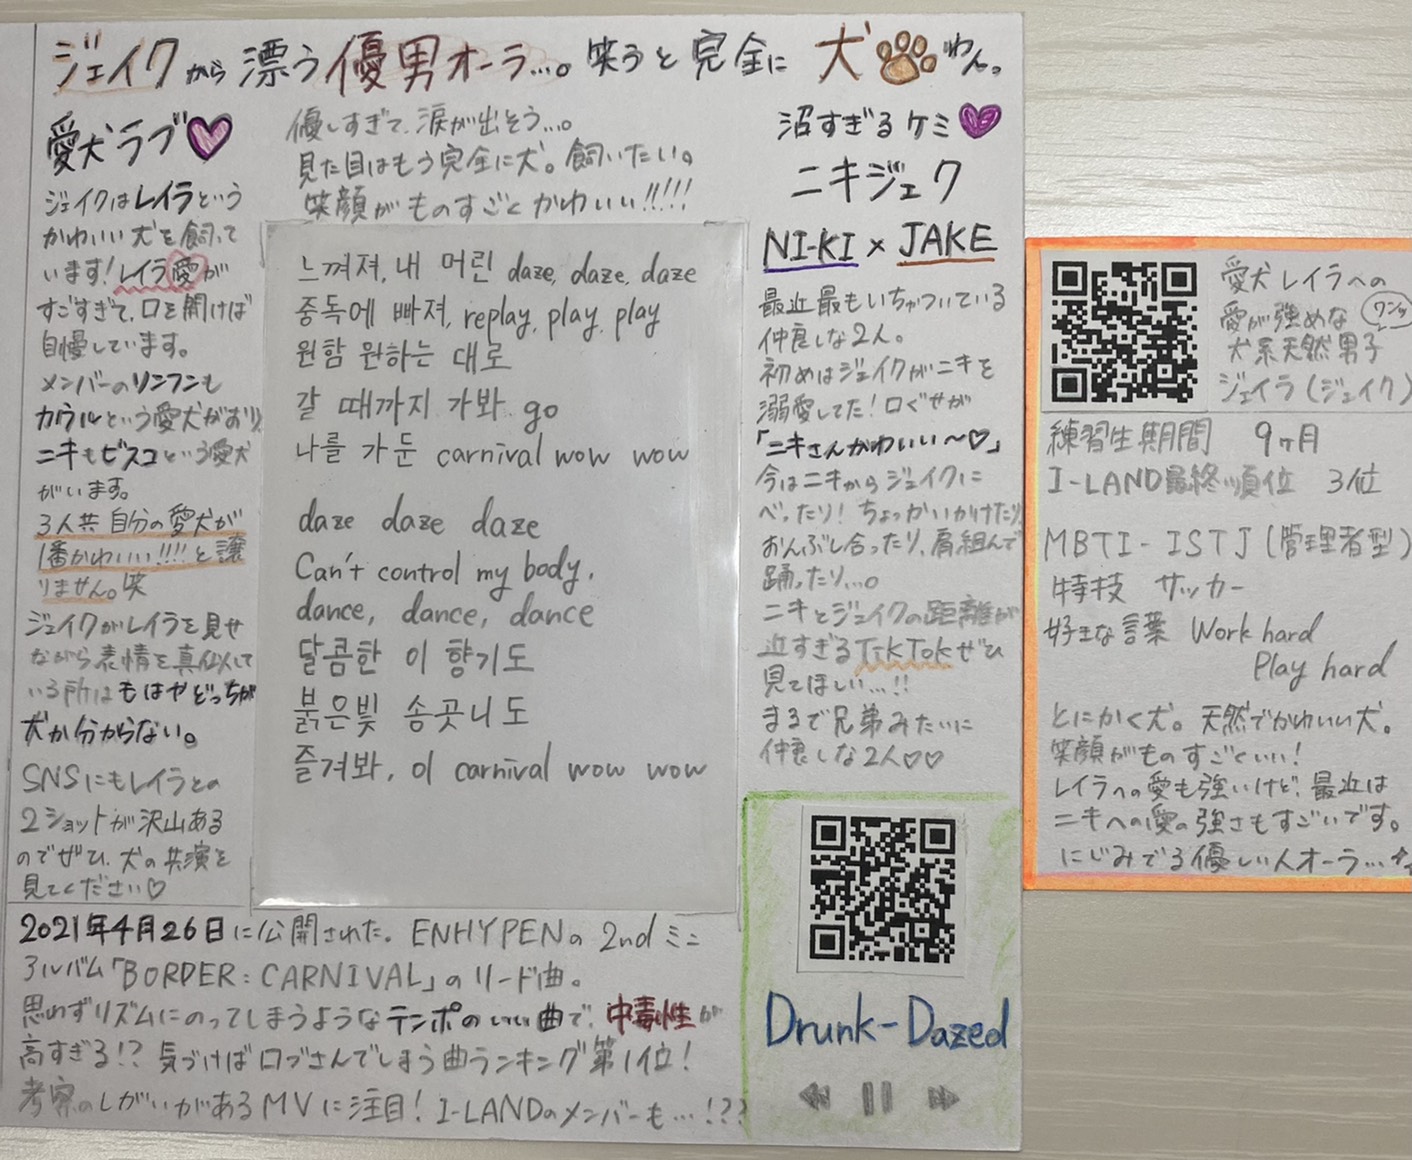 ジェイクから漂う優男オーラ…。笑うと完全に犬わん。
愛犬ラブ
ジェイクはレイラという
かわいい犬を飼って
います!レイラ愛が
すごすぎて、口を開けば
自慢しています。
メンバーのソンフンも
カウルという愛犬がおり
ニキもビスコという愛犬
がいます。
3人共自分の愛犬が
1番かわいい!!!!と譲
りません。笑
ジェイクがレイラを見せ
ながら表情を真似して
いる所はもはやどっちが
犬か分からない。
SNSにもレイラとの
2ショットが沢山ある
のでぜひ、犬の共演を
見てください♡
優しすぎて、涙が出そう…。
見た目はもう完全に犬。飼いたい。
笑顔がものすごくかわいい!!!!!
느껴져, 내 머린 daze, daze, daze
중독에 빠져, replay, play, play
원함 원하는 대로
갈 때까지 가봐 go
나를 가둔 carnival wow wow
daze daze daze
Can't control my body,
dance, dance, dance
달콤한 이 향기도
붉은빛 송곳니도
즐겨봐, 이 carnival wow wow
沼すぎるケミ
ニキジェク
NI-KI × JAKE
最近最もいちゃついている
仲良しな2人。
初めはジェイクがニキを
溺愛してた!口ぐせが
「ニキさんかわいい〜♡」
今はニキからジェイクに
べったり!ちょっかいかけたり
おんぶし合ったり、肩組んで
踊ったり…。
ニキとジェイクの距離が
近すぎるTikTokぜひ
見てほしい…!!
まるで兄弟みたいに
仲良しな2人♡♡
2021年4月26日に公開された。ENHYPENの2ndミニ
アルバム「BORDER:CARNIVAL」のリード曲。
思わずリズムにのってしまうようなテンポのいい曲で、中毒性が
高すぎる!?気づけば口ずさんでしまう曲ランキング第1位!
考察のしがいがあるMVに注目!I-LANDのメンバーも…!??
Drunk-Dazed
愛犬レイラへの
愛が強めな
ワンッ
犬系天然男子
ジェイラ(ジェイク)
練習生期間 9ヶ月
I-LAND最終順位 3位
MBTI-ISTJ(管理者型)
特技 サッカー
好きな言葉 Work hard
Play hard
とにかく犬。天然でかわいい犬。
笑顔がものすごくいい!
レイラへの愛も強いけど、最近は
ニキへの愛の強さもすごいです。
にじみでる優しい人オーラ…